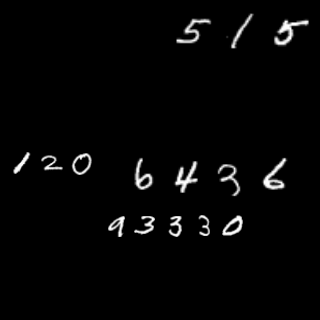 515
120
6436
93330